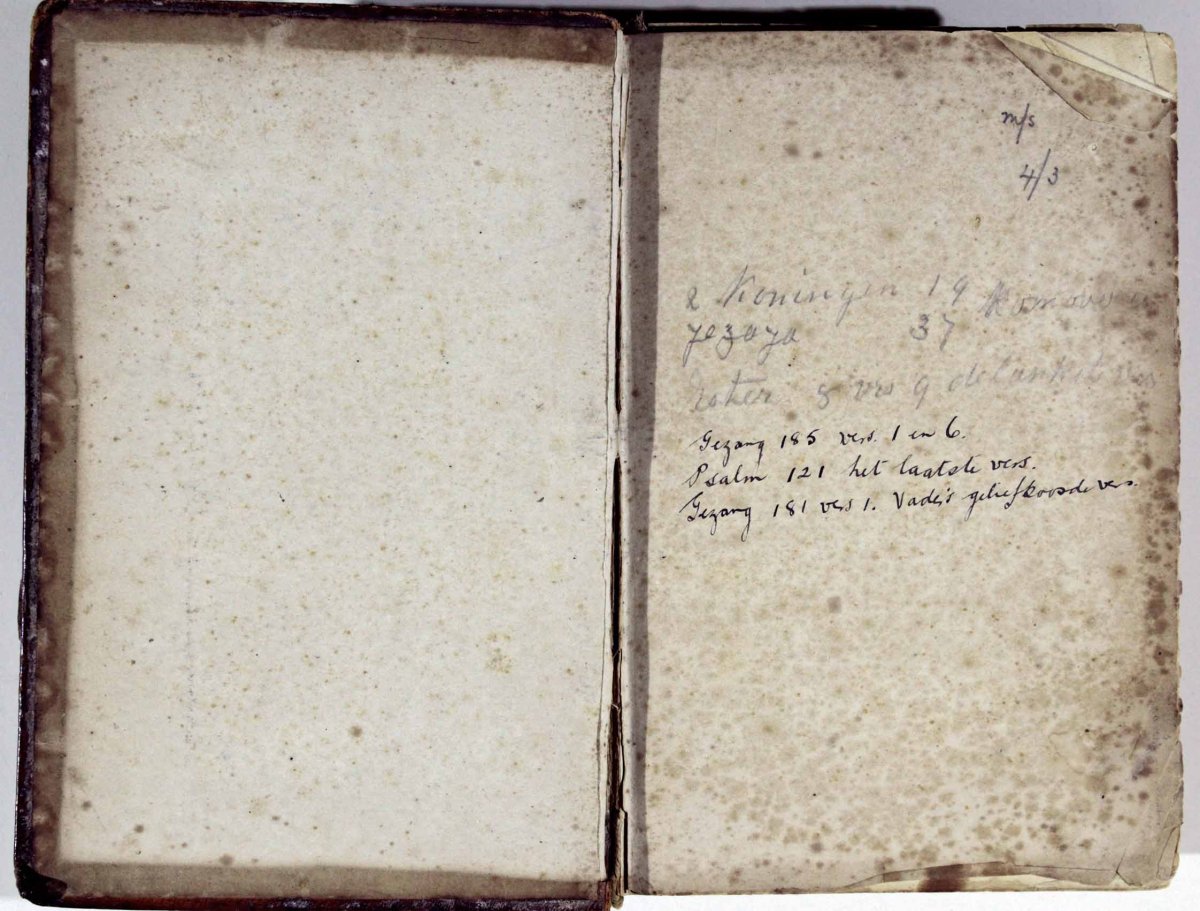 m/s
4/3
2 Koningen 19
Jezaja 37
Ester 8 vrs 9 de lankste vers
Gezang 185 vers. 1 en 6.
Psalm 121 het laatste vers.
Gezang 181 vers 1. Vader's geliefkoosde vers.